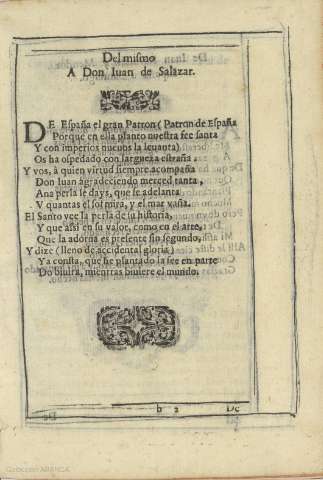 Del mismo
A Don Iuan de Salazar.
DE España el gran Patron (Patron de España
Porque en ella planto nuestra fee santa
Y con imperios nueuos la leuanta)
Os ha ospedado con largueza estraña.
Y vos, à quien virtud siempre acompaña
Don Iuan agradeciendo merced tanta,
Ana perla le days, que se adelanta
V quantas el sol mira, y el mar vaña.
El Santo vee la perla de su historia,
Y que assi en su valor, como en el arte,
Que la adorna es presente sin segundo,
Y dize (lleno de accidental gloria)
Ya consta, que he plantado la fee en parte
Do biuirà, mientras biuiere el mundo.
b 2
De